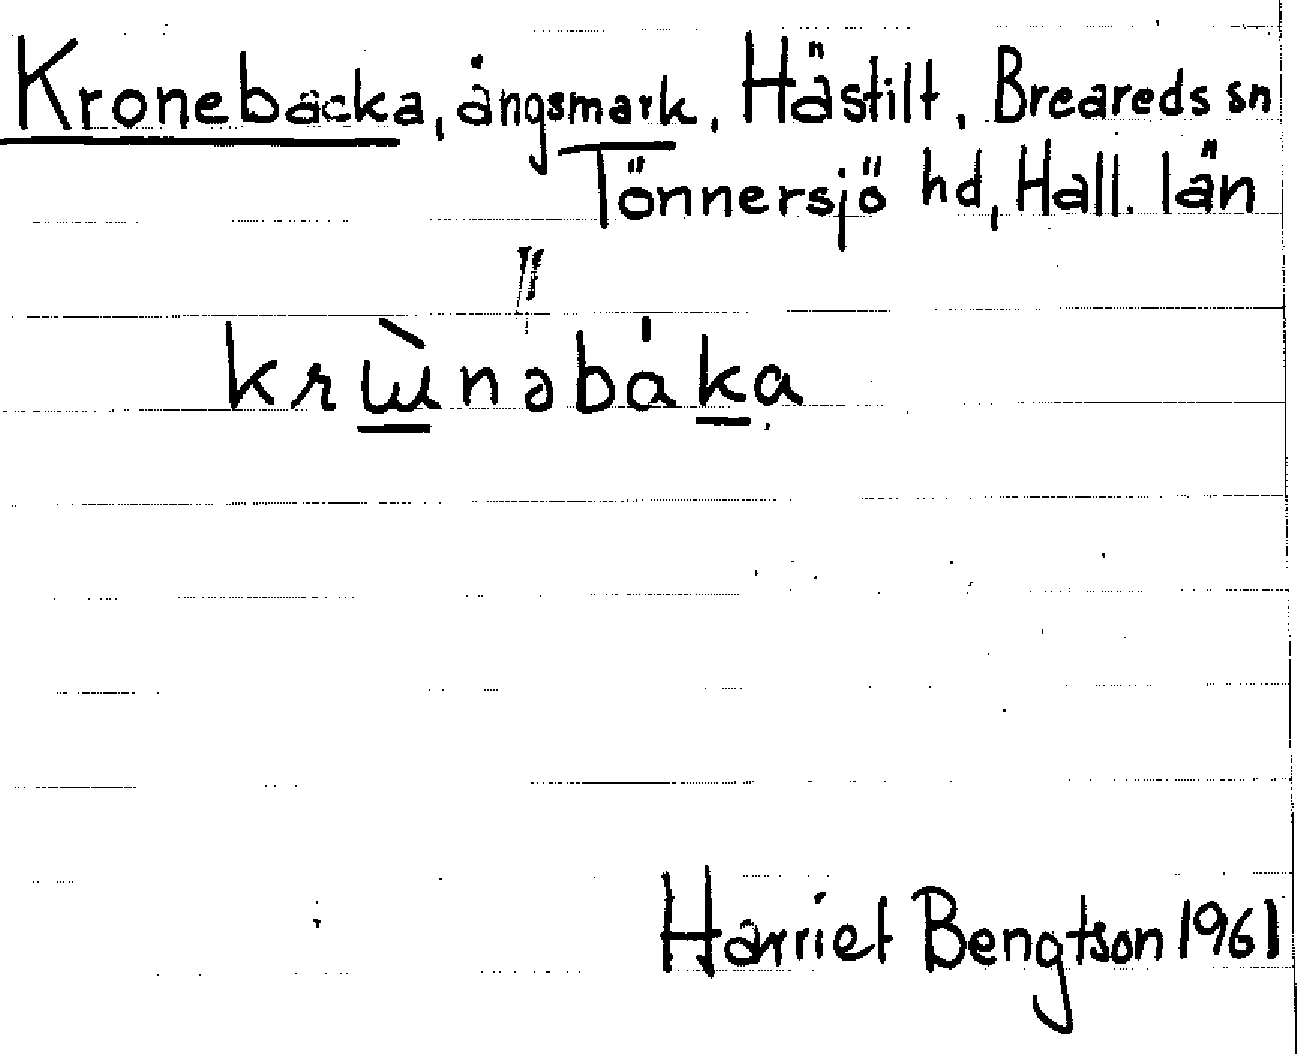 Kronebacka, ängsmark, Hästilt, Breareds sn
Tönnersjö hd, Hall. län
krɯ̀nəbáka
Harriet Bengtson 1961